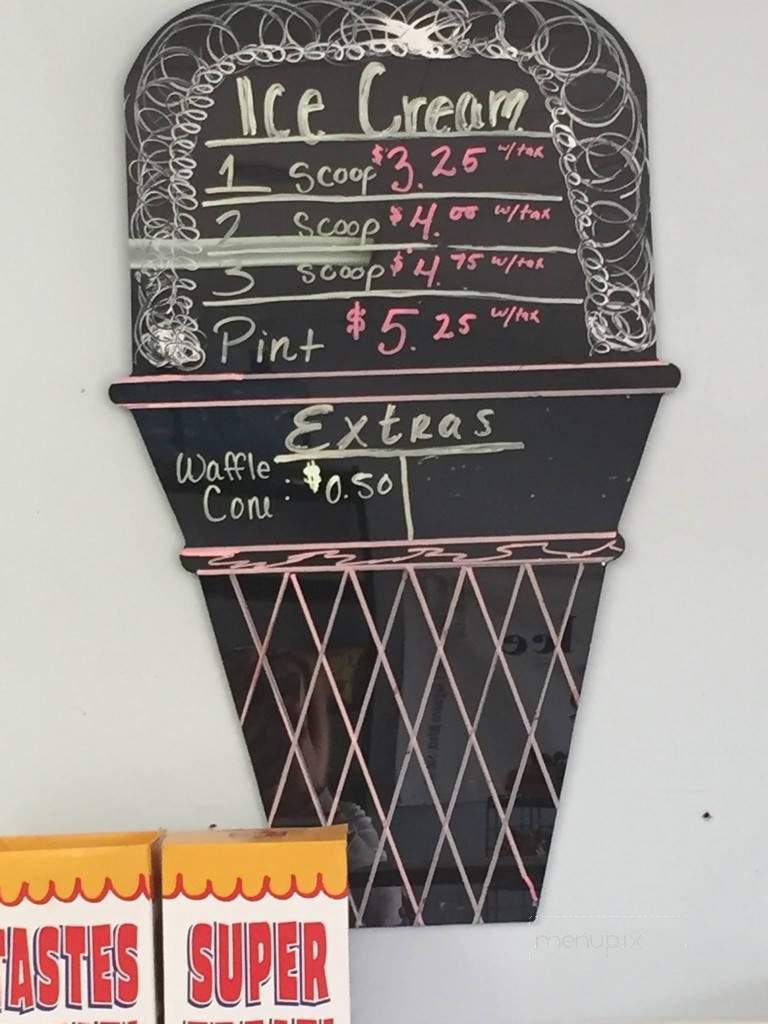 Ice Cream
1 Scoop $3.25 w/tax
2 Scoop $4.00 w/tax
3 Scoop $4.75 w/tax
Pint $5.25 w/tax
Extras
Waffle
Cone : $0.50
Ice
TASTES
SUPER
menupix